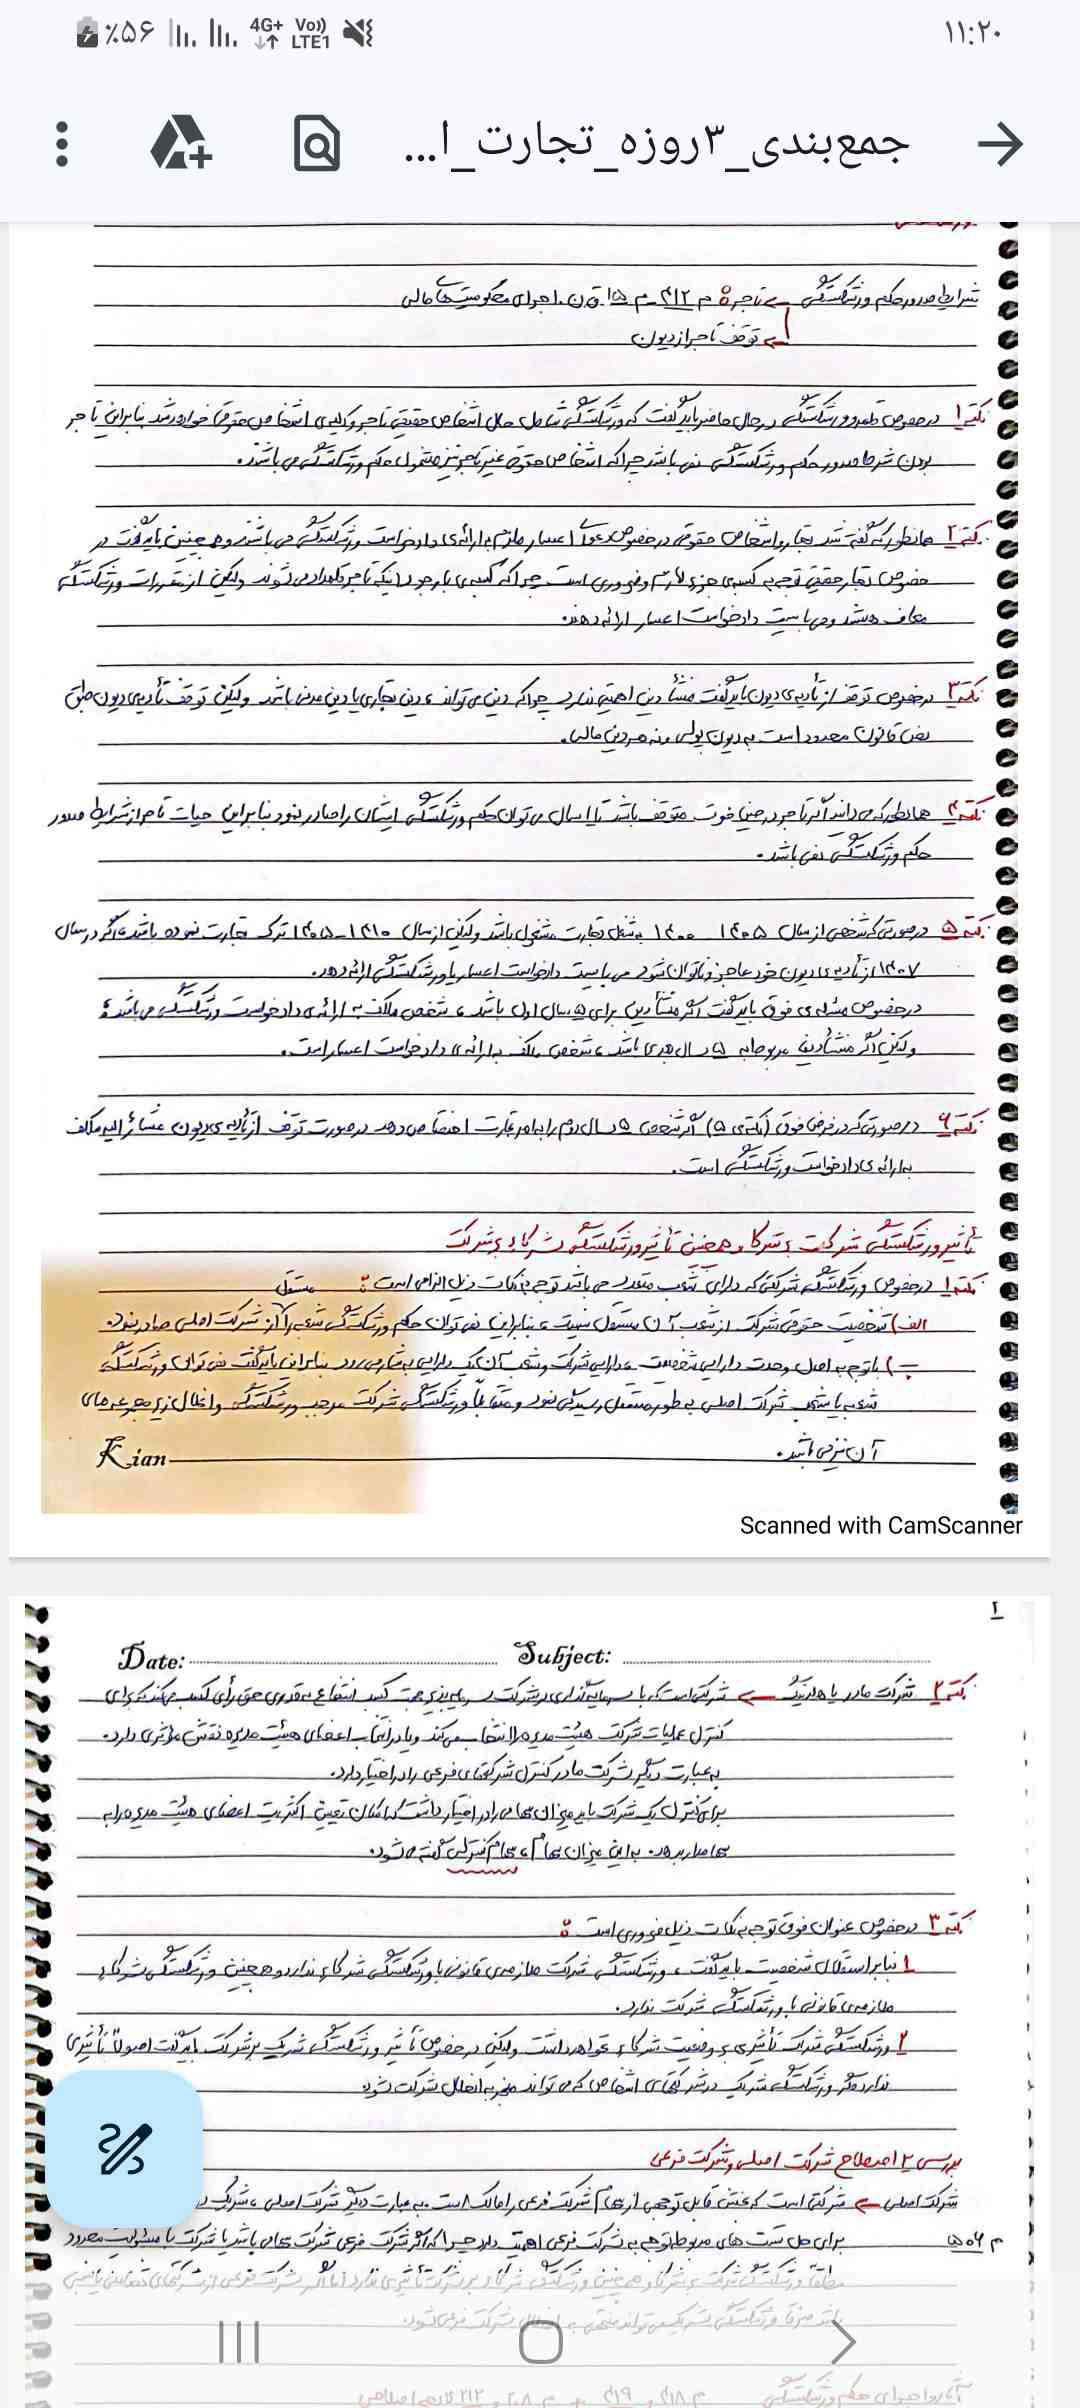 ۱۱:۲۰
4G+ Vo)) LTE1 ٪۵۶
جمع‌بندی_۳روزه_تجارت_ا...
شرایط صدور حکم ورشکستگی تاجر: م ۴۱۲ - م ۱۵ ق.ن.اجرای محکومیت‌های مالی
توقف تاجر از دیون
نکته۱ درخصوص قلمرو ورشکستگی در حال حاضر باید گفت که ورشکستگی شامل حال اشخاص حقیقی تاجر و کلیه‌ی اشخاص حقوقی خواهد شد بنابراین تاجر
بودن شرط صدور حکم ورشکستگی نمی باشد چرا که اشخاص حقوقی غیر تاجر نیز مشمول حکم ورشکستگی می باشد.
نکته۲ همانطور که گفته شد تجار و اشخاص حقوقی درخصوص دعوای اعسار ملزم به ارائه‌ی دادخواست ورشکستگی می باشند و همچنین باید گفت در
خصوص تجار حقیقی توجه به کسبه‌ی جزء لازم و ضروری است چرا که کسبه‌ی با وجود اینکه تاجر قلمداد می شوند ولیکن از مقررات ورشکستگی
معاف هستند و می بایست دادخواست اعسار ارائه دهند.
نکته۳ درخصوص توقف از تأدیه‌ی دیون باید گفت منشأ دین اهمیتی ندارد چرا که دین می تواند دین تجاری یا دین مدنی باشد ولیکن توقف تأدیه‌ی دیون طبق
نص قانون محدود است به دیون پولی و نه هر دین مالی.
نکته۴ همانطور که می دانید اگر تاجر در حین فوت متوقف باشد تا ۱ سال می توان حکم ورشکستگی ایشان را صادر نمود بنابراین حیات تاجر از شرایط صدور
حکم ورشکستگی نمی باشد.
نکته۵ درصورتی که شخصی از سال ۱۴۰۵-۱۴۰۰ به شغل تجارت مشغول باشد ولیکن از سال ۱۴۱۰-۱۴۰۵ ترک تجارت نموده باشد، اگر در سال
۱۴۰۷ از تأدیه‌ی دیون خود عاجز و ناتوان شود می بایست دادخواست اعسار یا ورشکستگی ارائه دهد.
درخصوص مسئله‌ی فوق باید گفت اگر منشأ دین برای ۵ سال اول باشد، شخص مکلف به ارائه‌ی دادخواست ورشکستگی می باشد؛
ولیکن اگر منشأ دین مربوط به ۵ سال بعدی باشد، شخص مکلف به ارائه‌ی دادخواست اعسار است.
نکته۶ درصورتی که در فرض فوق (نکته‌ی ۵) اگر شخص ۵ سال دوم را به امر تجارت اختصاص دهد در صورت توقف از تأدیه‌ی دیون مشارالیه مکلف
به ارائه‌ی دادخواست ورشکستگی است.
تأثیر ورشکستگی شرکت بر شرکاء و همچنین تأثیر ورشکستگی شرکاء بر شرکت
نکته۱ درخصوص ورشکستگی شرکتی که دارای شعب متعدد می باشد توجه به نکات ذیل الزامی است:
مستقل
الف) شخصیت حقوقی شرکت از شعب آن مستقل نیست، بنابراین نمی توان حکم ورشکستگی شعبه را از شرکت اصلی صادر نمود.
ب) با توجه به اصل وحدت دارایی شخصیت، دارایی شرکت و شعب آن یک دارایی به شمار می رود بنابراین باید گفت نمی توان ورشکستگی
شعبه یا شعب شرکت اصلی به طور مستقل رسیدگی نمود و متقابلاً ورشکستگی شرکت موجب ورشکستگی و انحلال زیرمجموعه های
آن نیز می باشد.
Kian
Scanned with CamScanner
۲
Date: Subject:
نکته۲ شرکت مادر یا هلدینگ شرکتی است که با سرمایه گذاری در شرکت سرمایه پذیر جهت کسب انتفاع به قدری حق رأی کسب می کند که برای
کنترل عملیات شرکت هیئت مدیره را انتخاب می کند و یا در انتخاب اعضای هیئت مدیره نقش مؤثری دارد.
به عبارت دیگر شرکت مادر کنترل شرکتهای فرعی را در اختیار دارد.
برای کنترل یک شرکت باید میزان سهامی را در اختیار داشت که امکان تعیین اکثریت اعضای هیئت مدیره را به
سهامدار بدهد. به این میزان سهام، سهام کنترلی گفته می شود.
نکته۳ درخصوص عنوان فوق توجه به نکات ذیل ضروری است:
۱ بنا بر استقلال شخصیت باید گفت، ورشکستگی شرکت ملازمه‌ی قانونی با ورشکستگی شرکاء ندارد و همچنین ورشکستگی شرکاء
ملازمه‌ی قانونی با ورشکستگی شرکت ندارد.
۲ ورشکستگی شرکت تأثیری بر وضعیت شرکاء نخواهد داشت ولیکن درخصوص تأثیر ورشکستگی شریک بر شرکت باید گفت اصولاً تأثیری
ندارد مگر ورشکستگی شریک در شرکتهای اشخاص که می تواند منجر به انحلال شرکت شود.
بررسی ۲ اصطلاح شرکت اصلی و شرکت فرعی
شرکت اصلی شرکتی است که بخش قابل توجهی از سهام شرکت فرعی را مالک است. به عبارت دیگر شرکت اصلی، شریک
برای حل تست های مربوطه توجه به شرکت فرعی اهمیت دارد چرا که اگر شرکت فرعی شرکت سهامی باشد یا شرکت با مسئولیت محدود